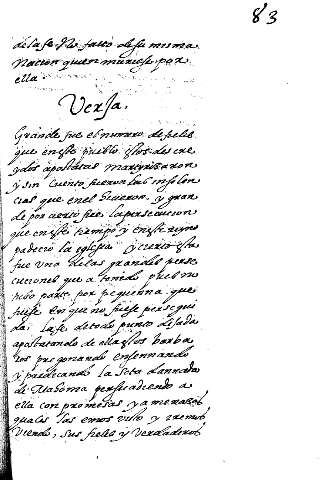 83
de la fe. No falto de su misma
nacion quien muriese por
ella.
Verja.
Grande fue el numero de fieles
que en este pueblo estos descre
ydos apostatas martyriçaron
y sin cuento fueron las insolen
cias que en el hicieron. y gran
de por cierto fue la persecucion
que en este tiempo y en este reyno
padecio la iglesia y cierto esta
fue una de las grandes perse
cuciones que a tenido pues no
hubo parte por pequenna que
fuese en que no fuese persegui
da la fe de todo punto dejada
apostatando de ella estos barba
ros pregonando ensennando
y predicando la seta dannada
de Mahoma persuadiendo a
ella con promesas y amenaças
quales las emos visto y yremos
viendo, sus fieles y verdaderos